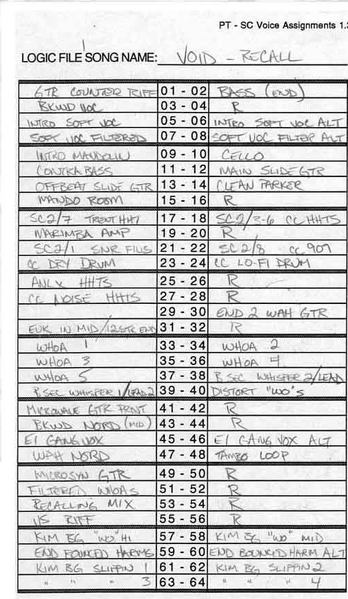 PT - SC Voice Assignments 1.
LOGIC FILE/SONG NAME: VOID - RECALL
GTR COUNTER RIFF 01 - 02 BASS (END)
BKWD VOC 03 - 04 R
INTRO SOFT VOC 05 - 06 INTRO SOFT VOC ALT
SOFT VOC FILTERED 07 - 08 SOFT VOC FILTER ALT
INTRO MANDOLIN 09 - 10 CELLO
CONTRABASS 11 - 12 MAIN SLIDE GTR
OFFBEAT SLIDE GTR 13 - 14 CLEAN PARKER
MANDO ROOM 15 - 16 R
SC2/7 TRENT HHT 17 - 18 SC2/3-6 CC HHTS
MARIMBA AMP 19 - 20 R
SC2/1 SNR FILLS 21 - 22 SC2/8 CC 909
CC DRY DRUM 23 - 24 CC LO-FI DRUM
ANLX HHTS 25 - 26 R
CC NOISE HHTS 27 - 28 R
29 - 30 END 2 WAH GTR
IN MID/12STR END 31 - 32 R
WHOA 1 33 - 34 WHOA 2
WHOA 3 35 - 36 WHOA 4
WHOA 5 37 - 38 B SEC WHISPER 2/LEAD
B SEC WHISPER 1/LEAD 2 39 - 40 DISTORT "WO'S"
MICROWAVE GTR FRNT 41 - 42 R
BKWD NORD (MID) 43 - 44 R
E1 GANG VOX 45 - 46 E1 GANG VOX ALT
WAH NORD 47 - 48 TAMBO LOOP
MICROSYN GTR 49 - 50 R
FILTERED WHOAS 51 - 52 R
RECALLING MIX 53 - 54 R
VS RIFF 55 - 56 R
KIM BG "WO" HI 57 - 58 KIM BG "WO" MID
END BOUNCED HARMS 59 - 60 END BOUNCED HARM ALT
KIM BG SLIPPIN 1 61 - 62 KIM BG SLIPPIN 2
" " " 3 63 - 64 " " " 4